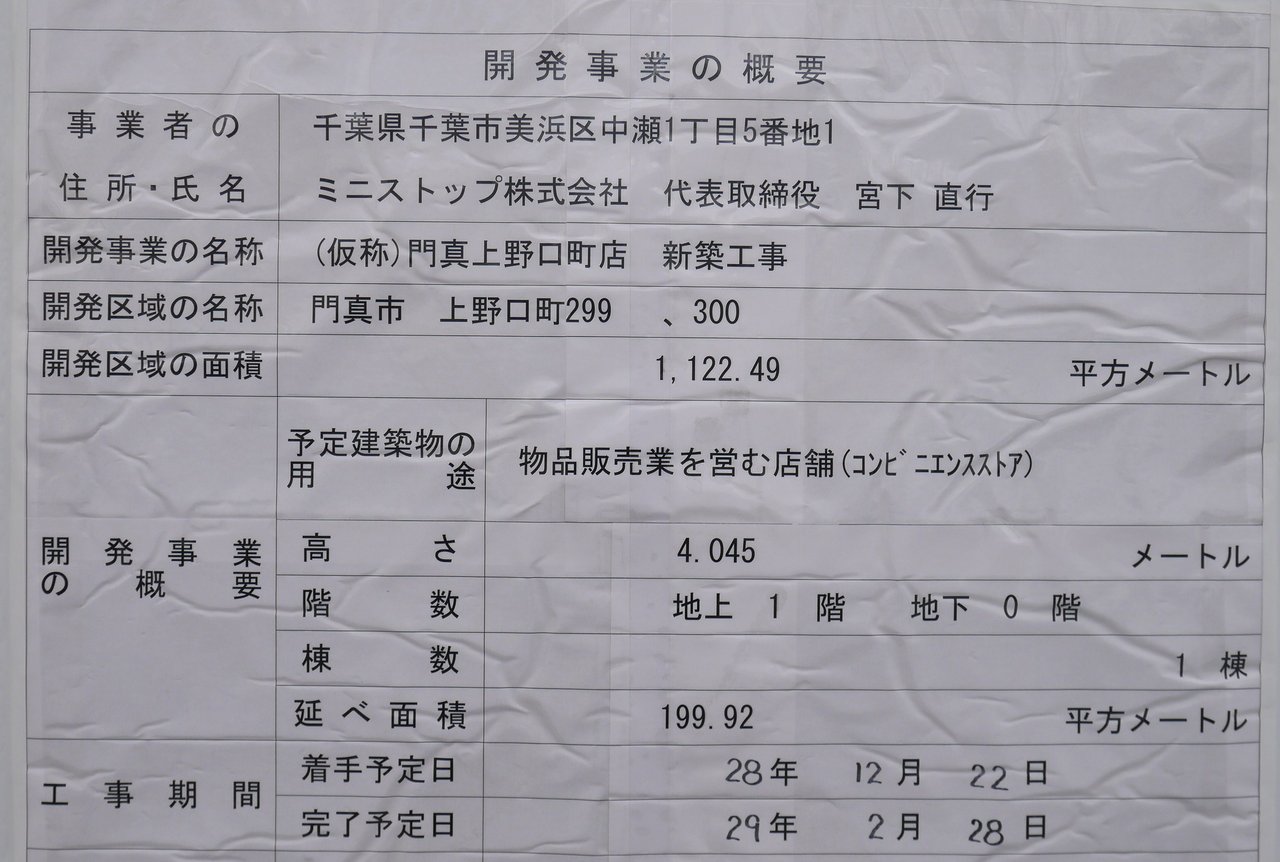 開発事業の概要
事業者の
住所・氏名
千葉県千葉市美浜区中瀬1丁目5番地1
ミニストップ株式会社　代表取締役　宮下 直行
開発事業の名称　(仮称)門真上野口町店　新築工事
開発区域の名称　門真市　上野口町299　、300
開発区域の面積　1,122.49　平方メートル
開発事業
の概要
予定建築物の
用途
物品販売業を営む店舗(ｺﾝﾋﾞﾆｴﾝｽｽﾄｱ)
高さ　4.045　メートル
階数　地上　1　階　地下　0　階
棟数　1　棟
延べ面積　199.92　平方メートル
工事期間
着手予定日　28年　12月　22日
完了予定日　29年　2月　28日